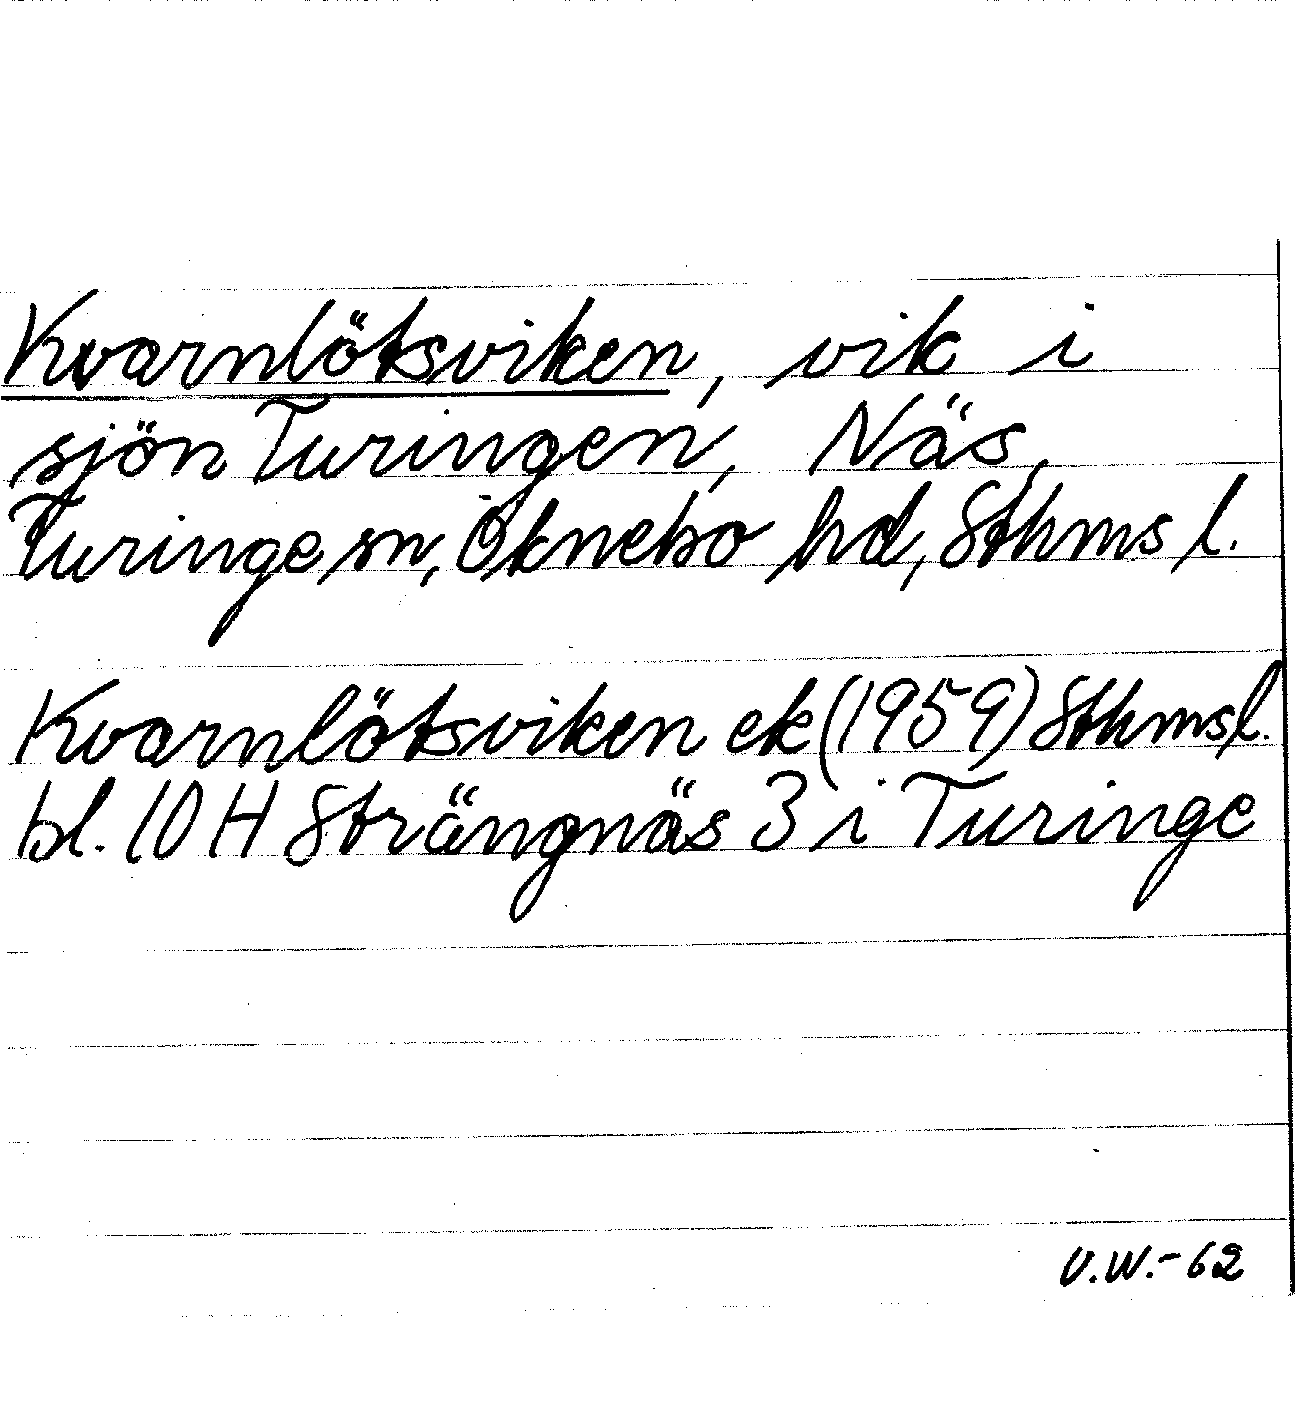 Kvarnlötsviken, vik i
sjön Turingen, Näs,
Turinge sn, Öknebo hd, Sthms l.
Kvarnlötsviken ek (1959) Sthmsl.
bl. 10 H Strängnäs 3 i Turinge
U.W.-62